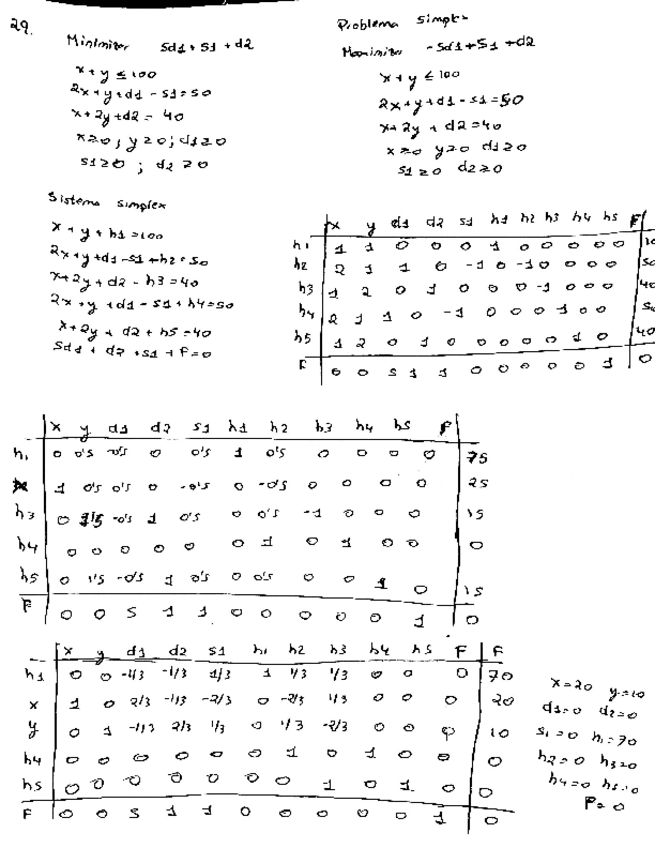 29.
Minimizar 5d1 + S1 + d2
x + y ≤ 100
2x + y + d1 - S1 = 50
x + 2y + d2 = 40
x ≥ 0 ; y ≥ 0 ; d1 ≥ 0
S1 ≥ 0 ; d2 ≥ 0
Problema simplex
Maximizar -5d1 + S1 + d2
x + y ≤ 100
2x + y + d1 - S1 = 50
x + 2y + d2 = 40
x ≥ 0 y ≥ 0 d1 ≥ 0
S1 ≥ 0 d2 ≥ 0
Sistema simplex
x + y + h1 = 100
2x + y + d1 - S1 + h2 = 50
x + 2y + d2 - h3 = 40
2x + y + d1 - S1 + h4 = 50
x + 2y + d2 + h5 = 40
5d1 + d2 + S1 + F = 0
x y d1 d2 S1 h1 h2 h3 h4 h5 F
h1 1 1 0 0 0 1 0 0 0 0 0 10
h2 2 1 1 0 -1 0 -1 0 0 0 0 50
h3 1 2 0 1 0 0 0 -1 0 0 0 40
h4 2 1 1 0 -1 0 0 0 1 0 0 50
h5 1 2 0 1 0 0 0 0 0 1 0 40
F 0 0 5 1 1 0 0 0 0 0 1 0
x y d1 d2 S1 h1 h2 h3 h4 h5 F
h1 0 0's -0's 0 0's 1 0's 0 0 0 0 75
x 1 0's 0's 0 -0's 0 -0's 0 0 0 0 25
h3 0 -0's 1 0's 0 0's -1 0 0 0 15
h4 0 0 0 0 0 0 1 0 1 0 0 0
h5 0 1's -0's 1 0's 0 0's 0 0 1 0 15
F 0 0 5 1 1 0 0 0 0 0 1 0
x y d1 d2 S1 h1 h2 h3 h4 h5 F F
h1 0 0 -1/3 -1/3 1/3 1 1/3 1/3 0 0 0 70
x 1 0 2/3 -1/3 -2/3 0 -2/3 1/3 0 0 0 20
y 0 1 -1/3 2/3 1/3 0 1/3 -2/3 0 0 0 10
h4 0 0 0 0 0 0 1 0 1 0 0 0
h5 0 0 0 0 0 0 0 1 0 1 0 0
F 0 0 5 1 1 0 0 0 0 0 1 0
x = 20 y = 10
d1 = 0 d2 = 0
S1 = 0 h1 = 70
h2 = 0 h3 = 0
h4 = 0 h5 = 0
F = 0